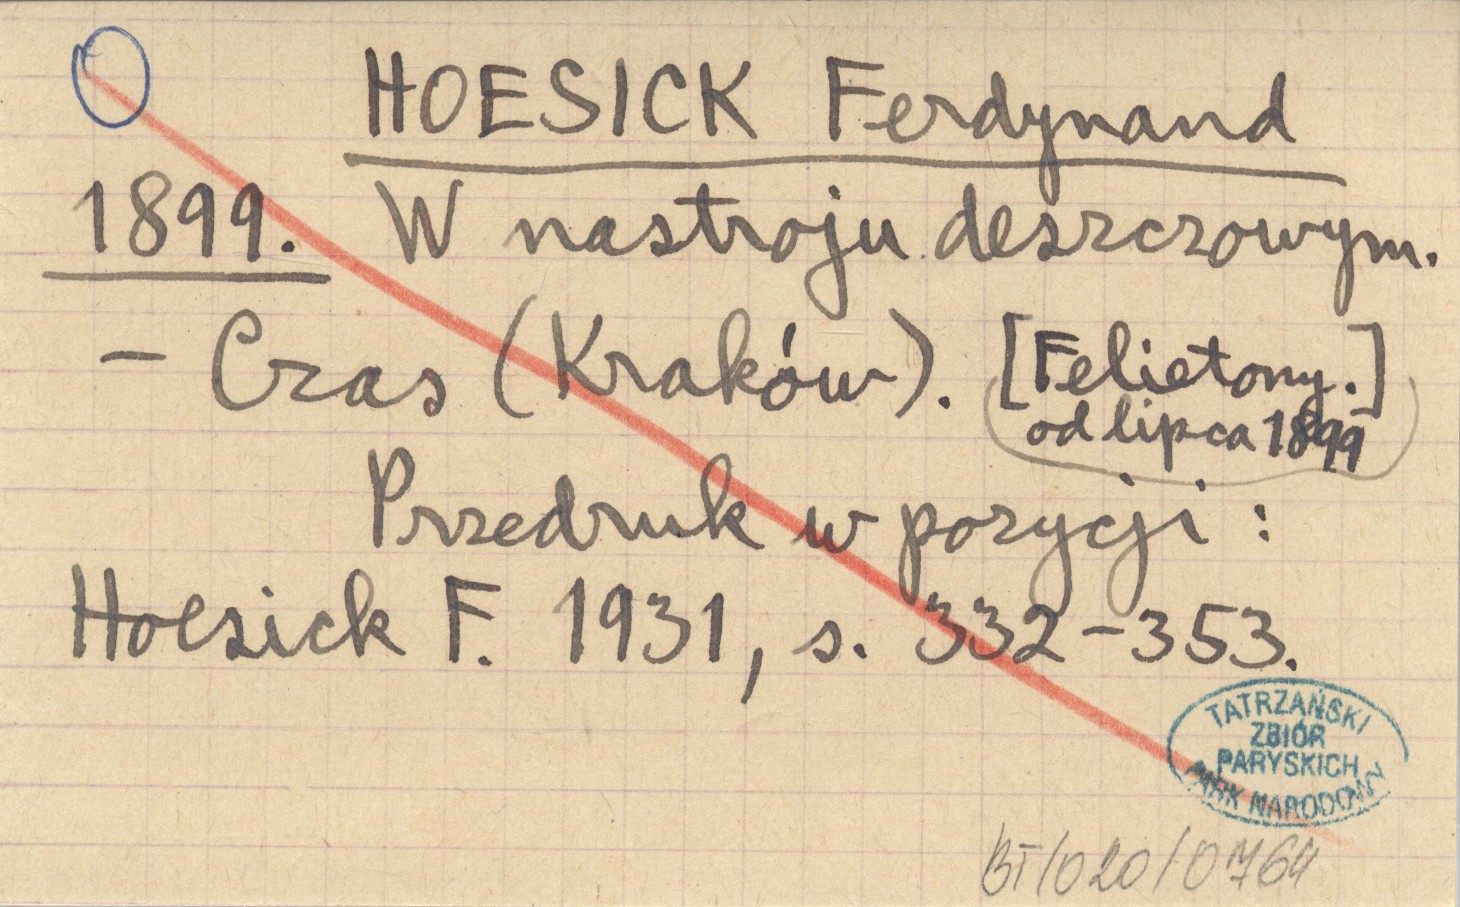 HOESICK Ferdynand
1899. W nastroju deszczowym.
- Czas (Kraków). [Felietony.]
od lipca 1899
Przedruk w pozycji:
Hoesick F. 1931, s. 332-353.
TATRZAŃSKI
ZBIÓR
PARYSKICH
PARK NARODOWY
BT/020/0764